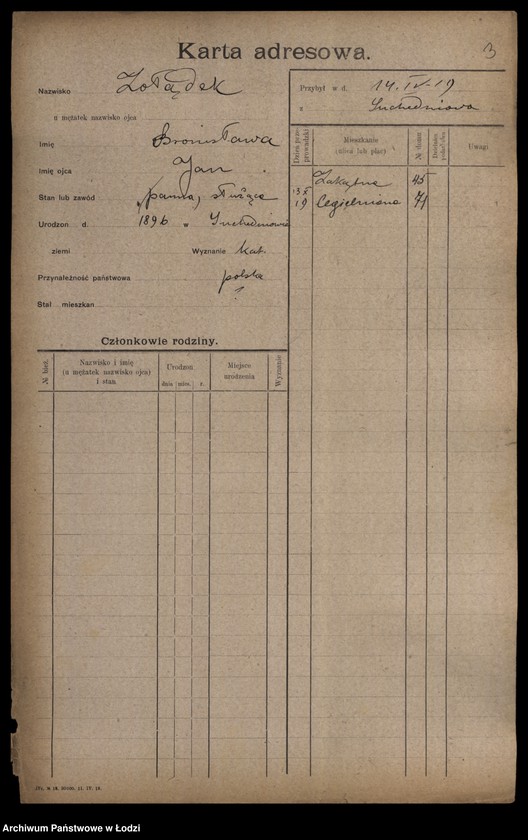 Karta adresowa.
3
Nazwisko Żołądek
u mężatek nazwisko ojca
Imię Bronisława
Imię ojca Jan
Stan lub zawód panna, służąca
Urodzon d. 1896 w Suchedniowie
ziemi Wyznanie kat.
Przynależność państwowa polska
Stał mieszkan
Członkowie rodziny.
№ bież.
Nazwisko i imię
(u mężatek nazwisko ojca)
i stan
Urodzon
dnia mies. r.
Miejsce
urodzenia
Wyznanie
Przybył w d. 14.IV-19
z Suchedniowa
Dzień prze-
prowadzki
Mieszkanie
(ulica lub plac)
№ domu
Uwagi
Zakątna 45
13 X
19 Cegielniana 71
Archiwum Państwowe w Łodzi